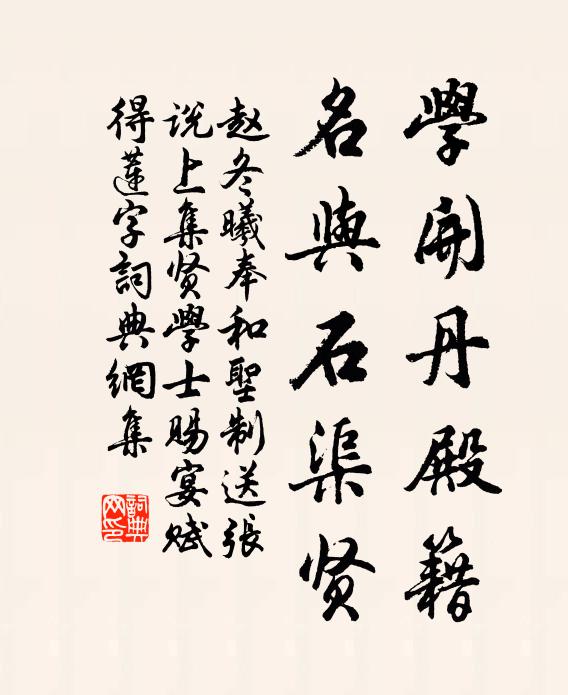 學開丹殿籍
名與石渠贤
赵冬曦奉和聖制送張
说上集贤學士赐宴赋
得莲字詞典網集
詞典
网印